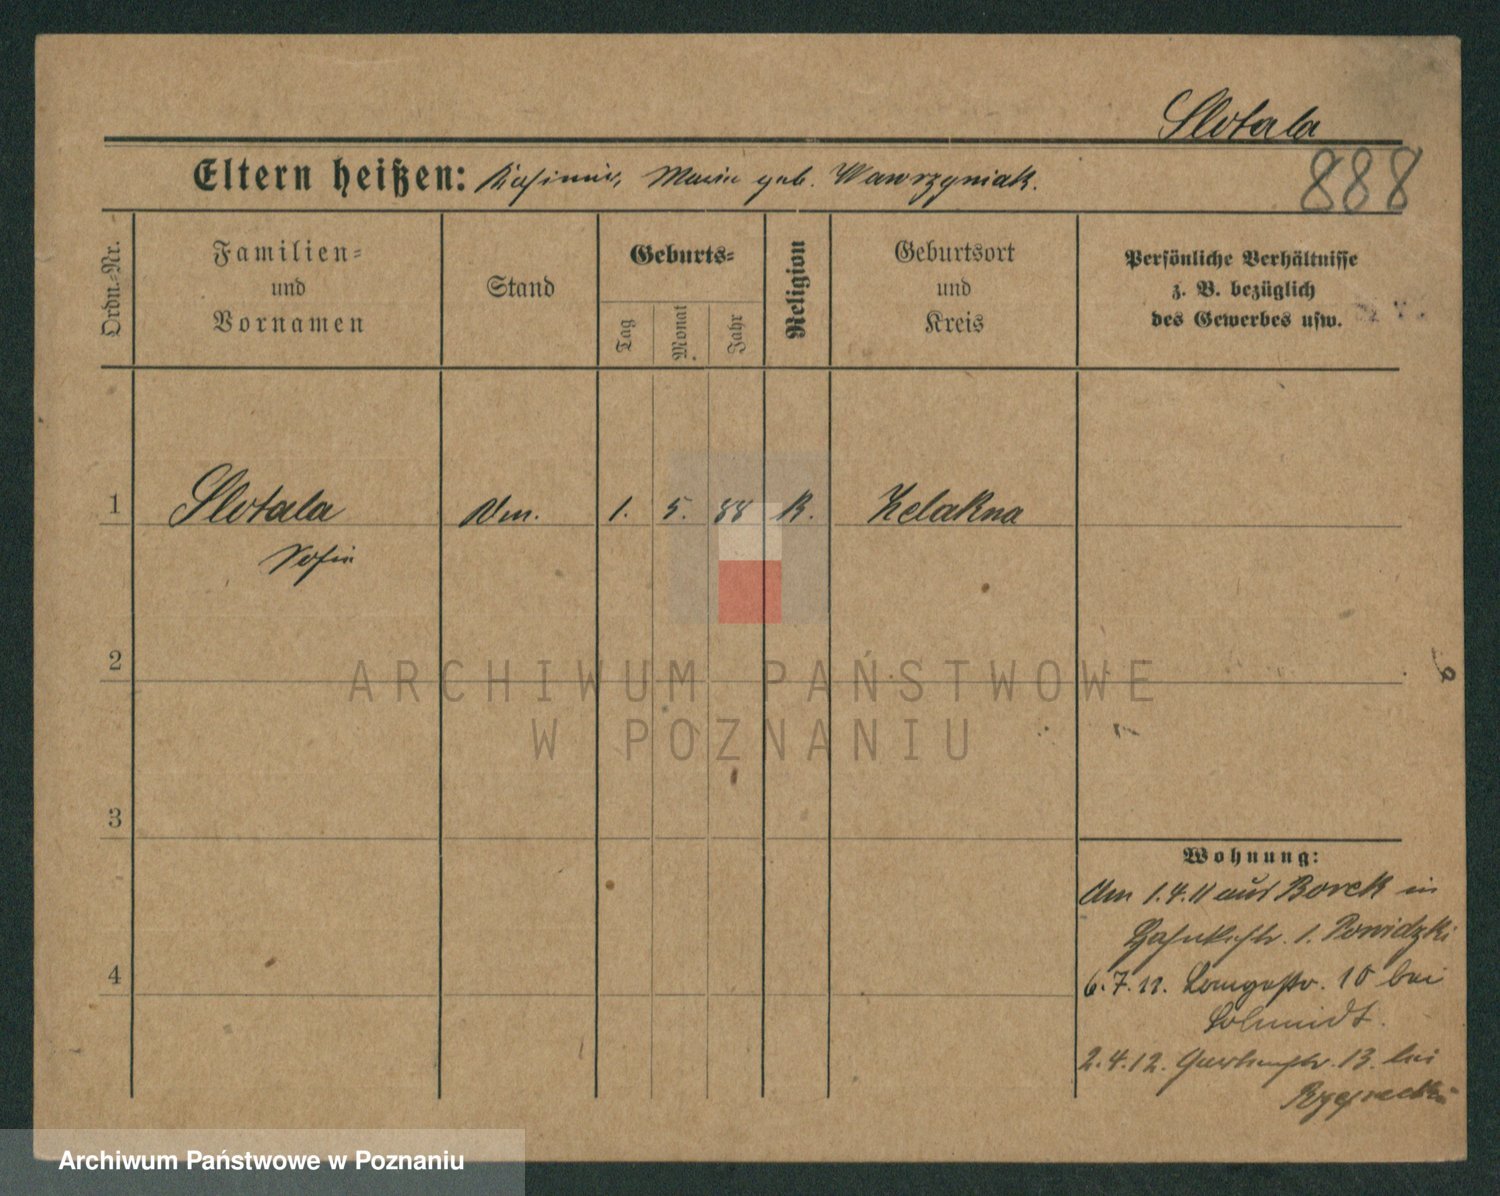 Slotala
Eltern heißen: Kasimir, Marie geb. Wawrzyniak.
888
Ordn.-Nr.
Familien=
und
Vornamen
Stand
Geburts=
Tag
Monat
Jahr
Religion
Geburtsort
und
Kreis
Persönliche Verhältnisse
z. B. bezüglich
des Gewerbes usw.
1
Slotala
1. 5. 88 K.
Zelakna
Sofie
2
ARCHIWUM PAŃSTWOWE
W POZNANIU
3
Wohnung:
Am 1.4.11 aus Borek in
1. Powidzki
4
6.7.11. Langestr. 10 bei
Schmidt.
2.4.12. Gartenstr. 13. bei
Archiwum Państwowe w Poznaniu